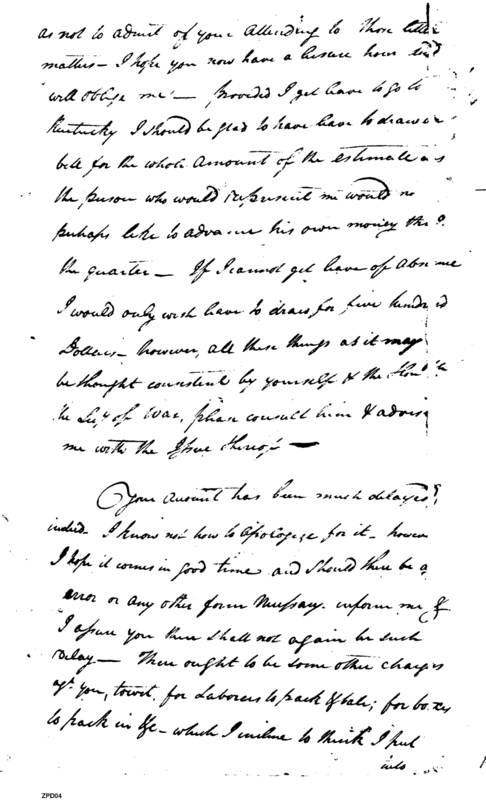 as not to admit of your Attending to those little
matters - I hope you now have a leisure hour and
will oblige me - provided I get leave to go to
Kentucky I should be glad to have leave to draw a
bill for the whole amount of the estimate as
the person who would represent me would no
perhaps like to advance his own money tho'
the quarter - If I cannot get leave of Absence
I would only wish leave to draw for five hundred
Dollars - however, all these things as it may
be thought consistent by yourself & the Honble
the Secy of War, please consult him & advise
me with the Issue thereof -
Your Account has been much delayed,
indeed - I know not how to Apologize for it - however
I hope it comes in good time and should there be a
error or any other form necessary - inform me &
I assure you there shall not again be such
Delay - There ought to be some other charges
agt. you, towit, for Laborers to pack & bale; for boxes
to pack in &c - which I incline to think I put
into
ZPD04